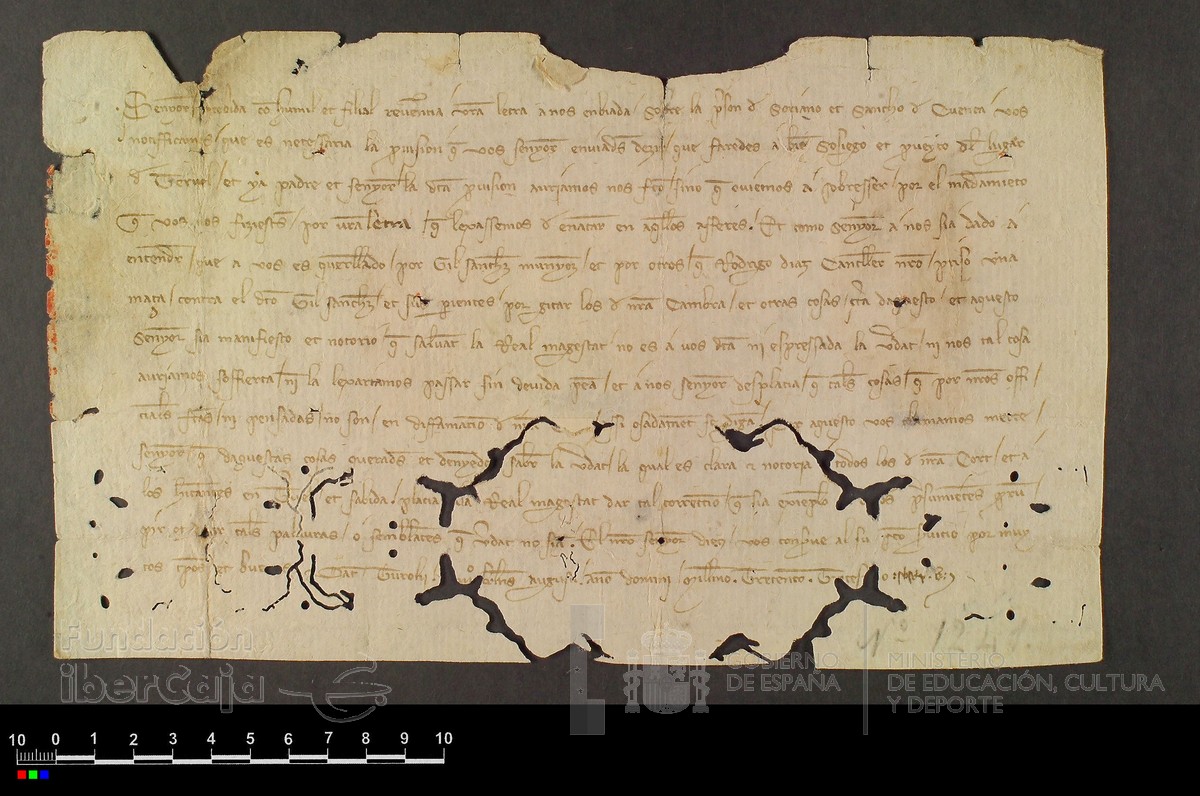 Senyor recebida con humil et filial reverencia vra letra a nos enbiada sobre la prison d Sociano et Sancho d Cuenca vos
notifficamos que es necessaria la provision q vos senyor enviads dezir que faredes a bie Sosiego et pueyto dl lugar
d Teruel et ya padre et senyor la dta pvision auriamos nos feyto sino q oviemos a sobresser por el madamieto
q vos nos fiziests por vra letra q lexassemos d enatar en aqllos afferes. Et como senyor a nos sia dado a
entendr que a vos es querellado por Gil sanchz munyoz et por otros q Rodrigo diaz Cancller nro ptiso una
mata contra el dto Gil sanchz et sus parientes por gitar los d nra Cambra et otras cosas cerca daquesto et aquesto
senyor sia manifiesto et notorio q salvat la Real magestat no es a vos dta ni espressada la vdat ni nos tal cosa
auriamos sofferta ni la lexariamos passar sin devida pena et a nos senyor desplacia q tals cosas q por nros offi
cials feytas ni pensadas no son en diffamacio d si osadamet se digan Por aquesto vos clamamos merce
senyor q daquestas cosas querads et denyeds saber la vdat la qual es clara et notoria todos los d nra Cort et a
los habitants en et sabida placia Real magestat dar tal correctio q sia exemplo psumietes prum
pir o tals palauras o semblantes q vdat no sia. El nro senyor dieu vos conserve al su sto servicio por muy
tos tpos et buenos Dat Turolii anno domini Millmo. Trecento.
No
10 0 1 2 3 4 5 6 7 8 9 10
Fundación
iberCaja
GOBIERNO
DE ESPAÑA
MINISTERIO
DE EDUCACIÓN, CULTURA
Y DEPORTE